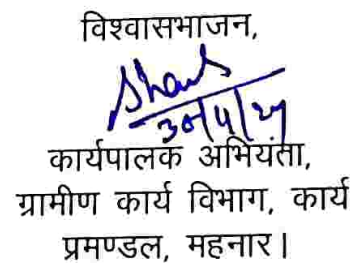 विश्वासभाजन,
कार्यपालक अभियंता,
ग्रामीण कार्य विभाग, कार्य
प्रमण्डल, महनार।